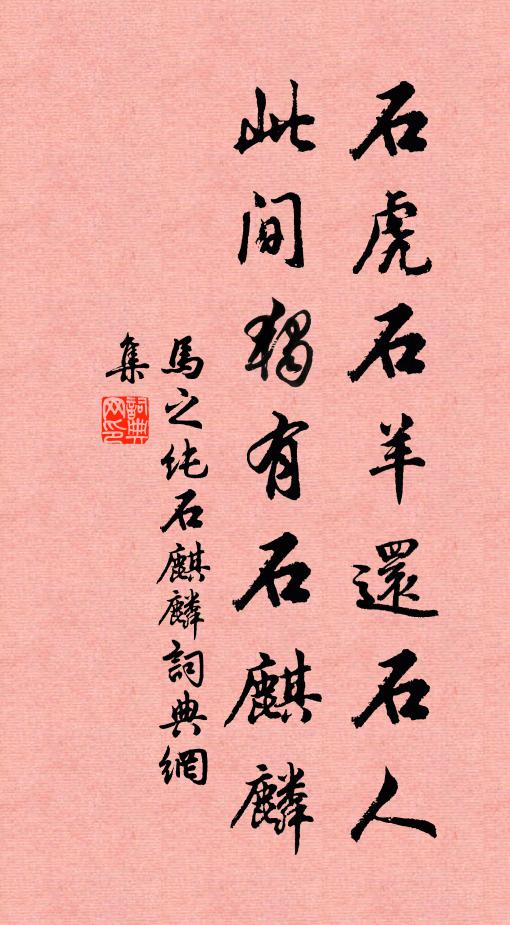 石虎石羊還石人
此间獨有石麒麟
馬之纯石麒麟詞典網
集
詞典网印